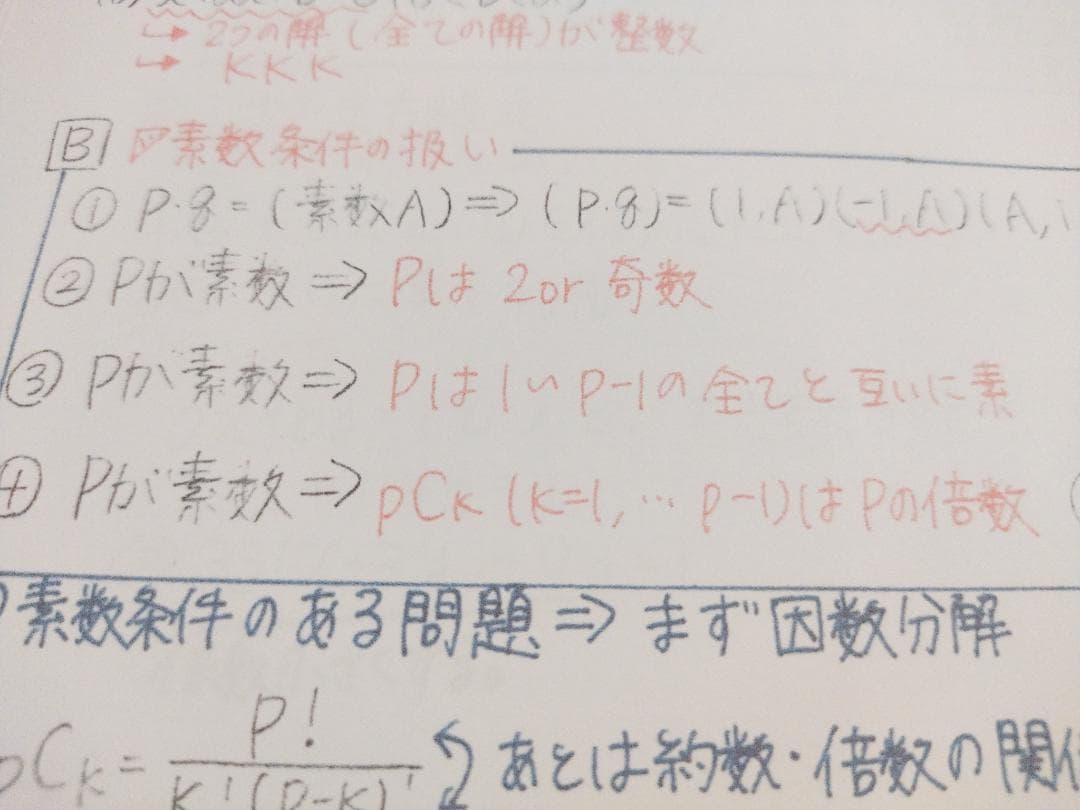 → 2つの解(全ての解)が整数
→ KKK
B 素数条件の扱い
① P・q = (素数A) ⇒ (P・q) = (1, A)(-1, A)(A,
② Pが素数 ⇒ Pは 2or 奇数
③ Pが素数 ⇒ Pは1〜P-1の全てと互いに素
④ Pが素数 ⇒ pCk (K=1, … p-1)はPの倍数
素数条件のある問題 ⇒ まず因数分解
pCk = P! / K!(P-K)! あとは約数・倍数の関